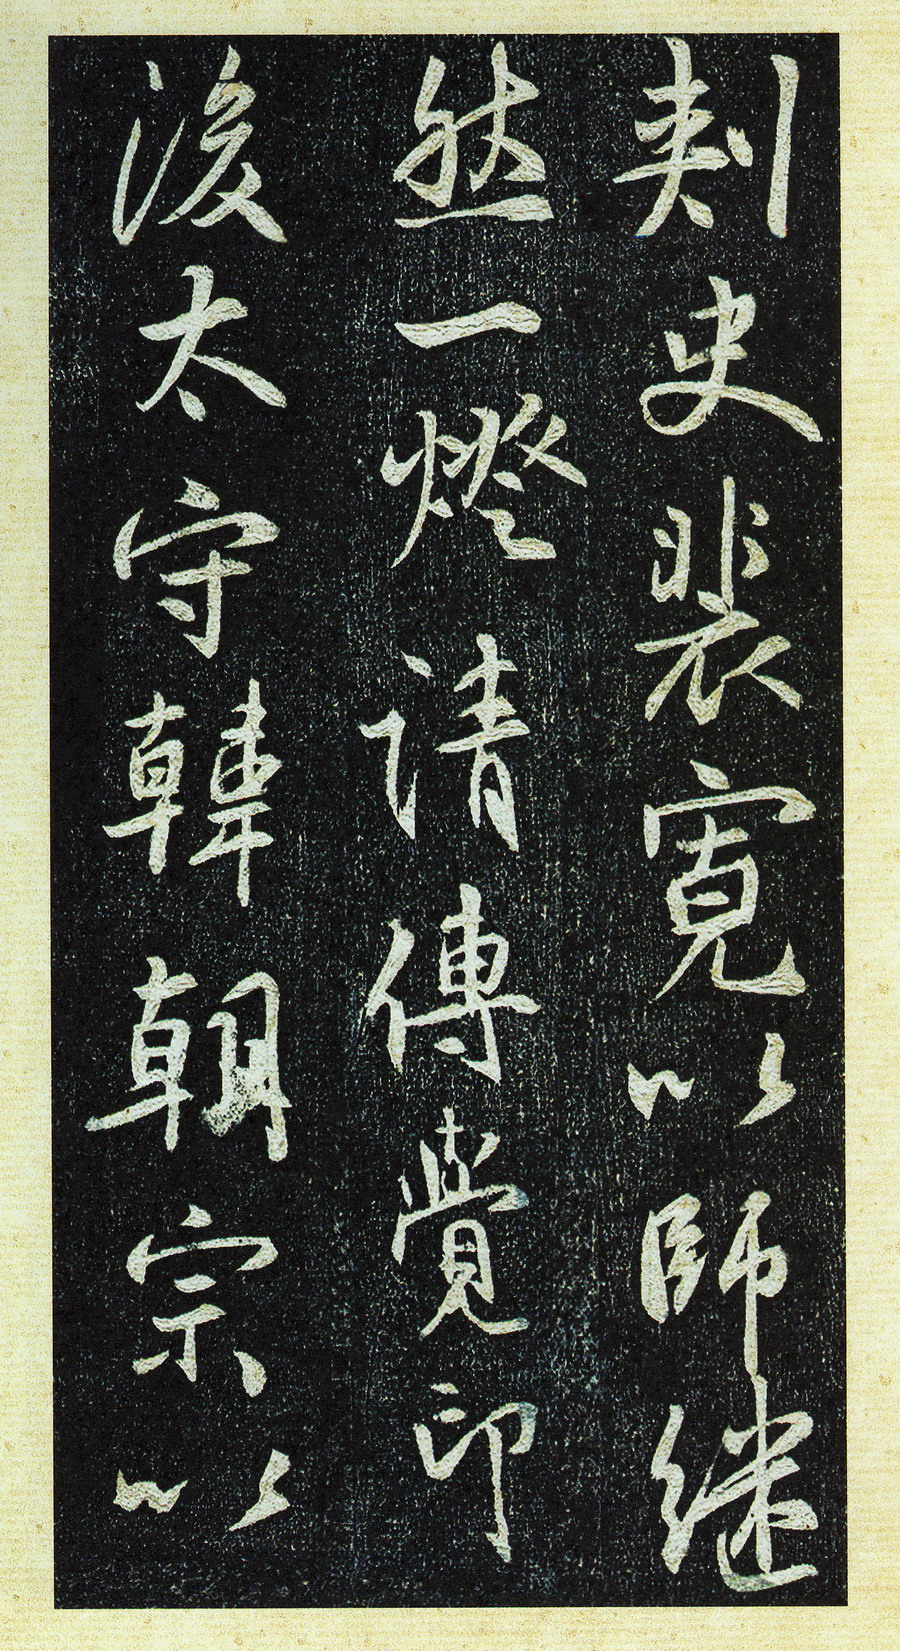 刺史裴寛以師継
然一燈請傳覺印
後太守韓朝宗以